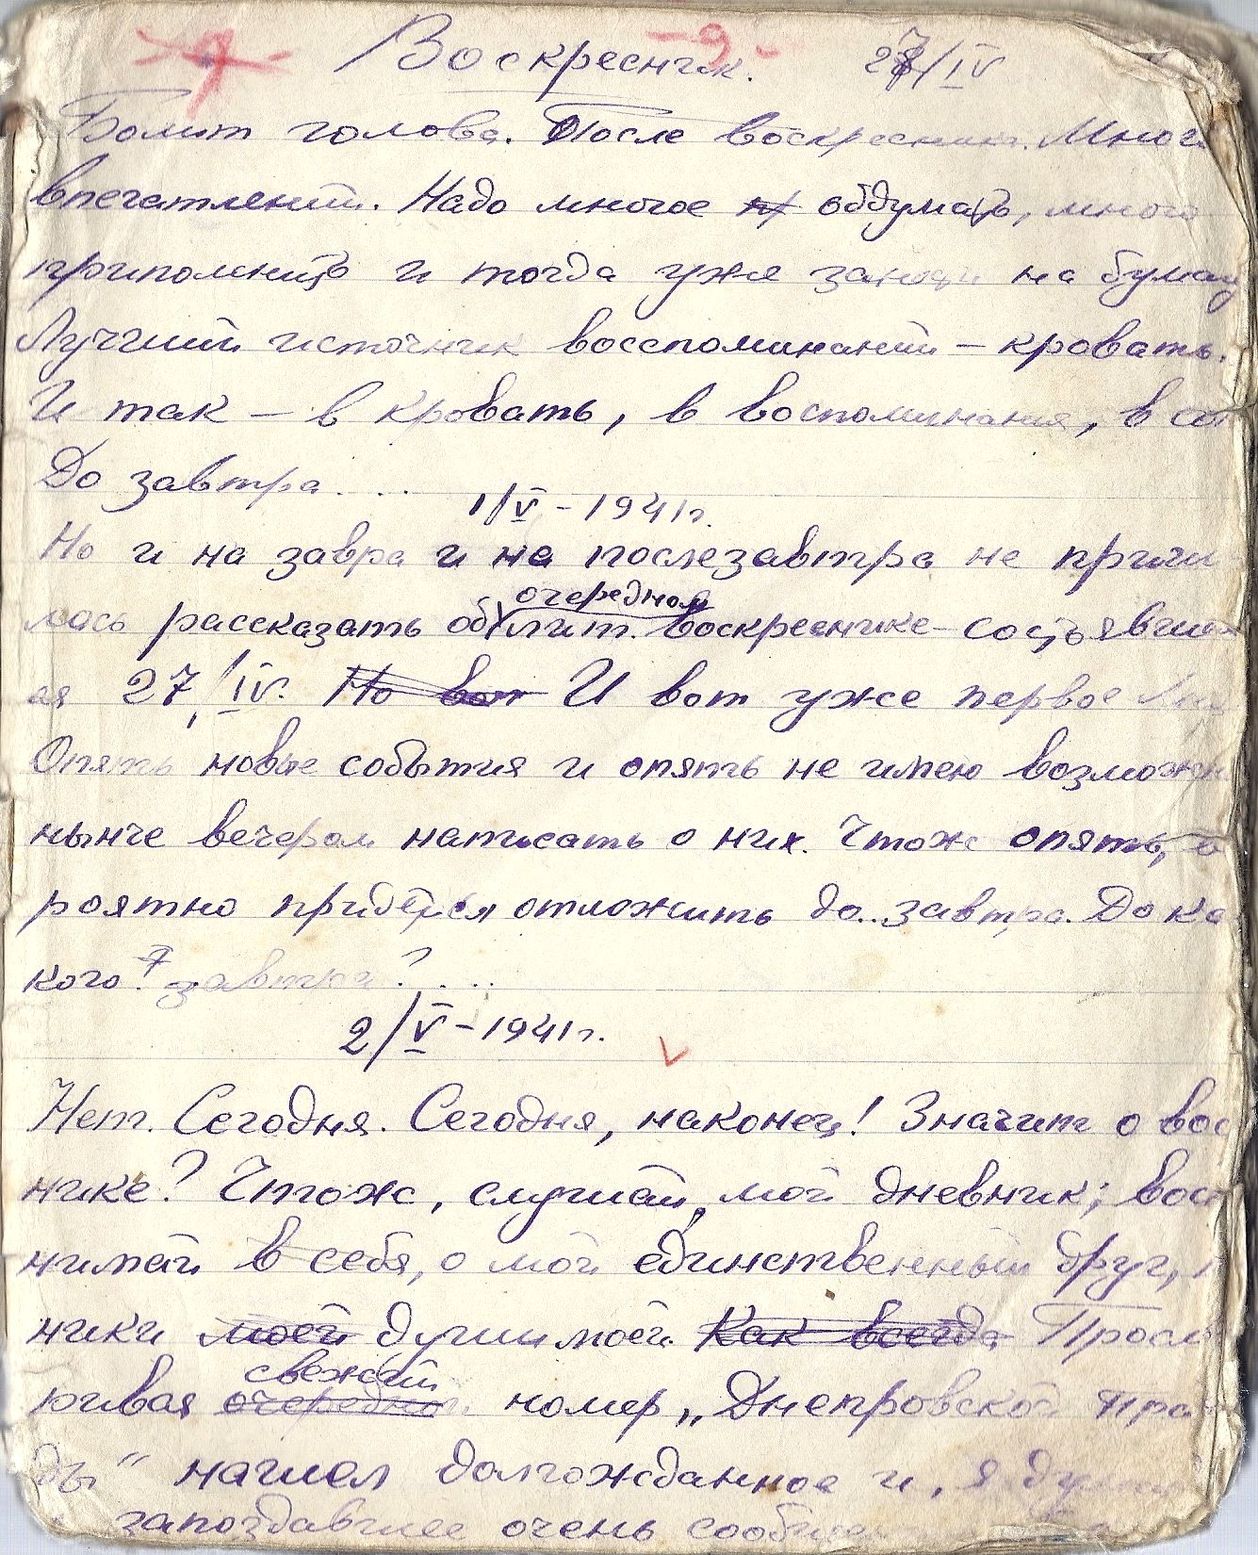 -9-
Воскресник. 27/IV
Болит голова. После воскресника. Много
впечатлений. Надо многое обдумать, много
припомнить и тогда уже заноси на бумагу
Лучший источник восспоминаний – кровать.
И так – в кровать, в воспоминания, в со
До завтра....
1/V - 1941г.
Но и на завра и на послезавтра не приш
лось рассказать об очередном лит. воскреснике – состоявши
ся 27/IV. Но вот И вот уже первое Мая
Опять новые события и опять не имею возможн
нынче вечером написать о них. Чтож опять, в
роятно придётся отложить до.. завтра. До ка
кого? завтра?...
2/V - 1941г.
Нет. Сегодня. Сегодня, наконец! Значит о вос
нике? Чтож, слушай, мой дневник; восп
нимай в себя, о мой единственный друг,
ники моей души моей. Как всегда Просм
ривая очередной свежий номер „Днепровской прав
ды" нашел долгожданное и, я дума
запоздавшее очень сообщен